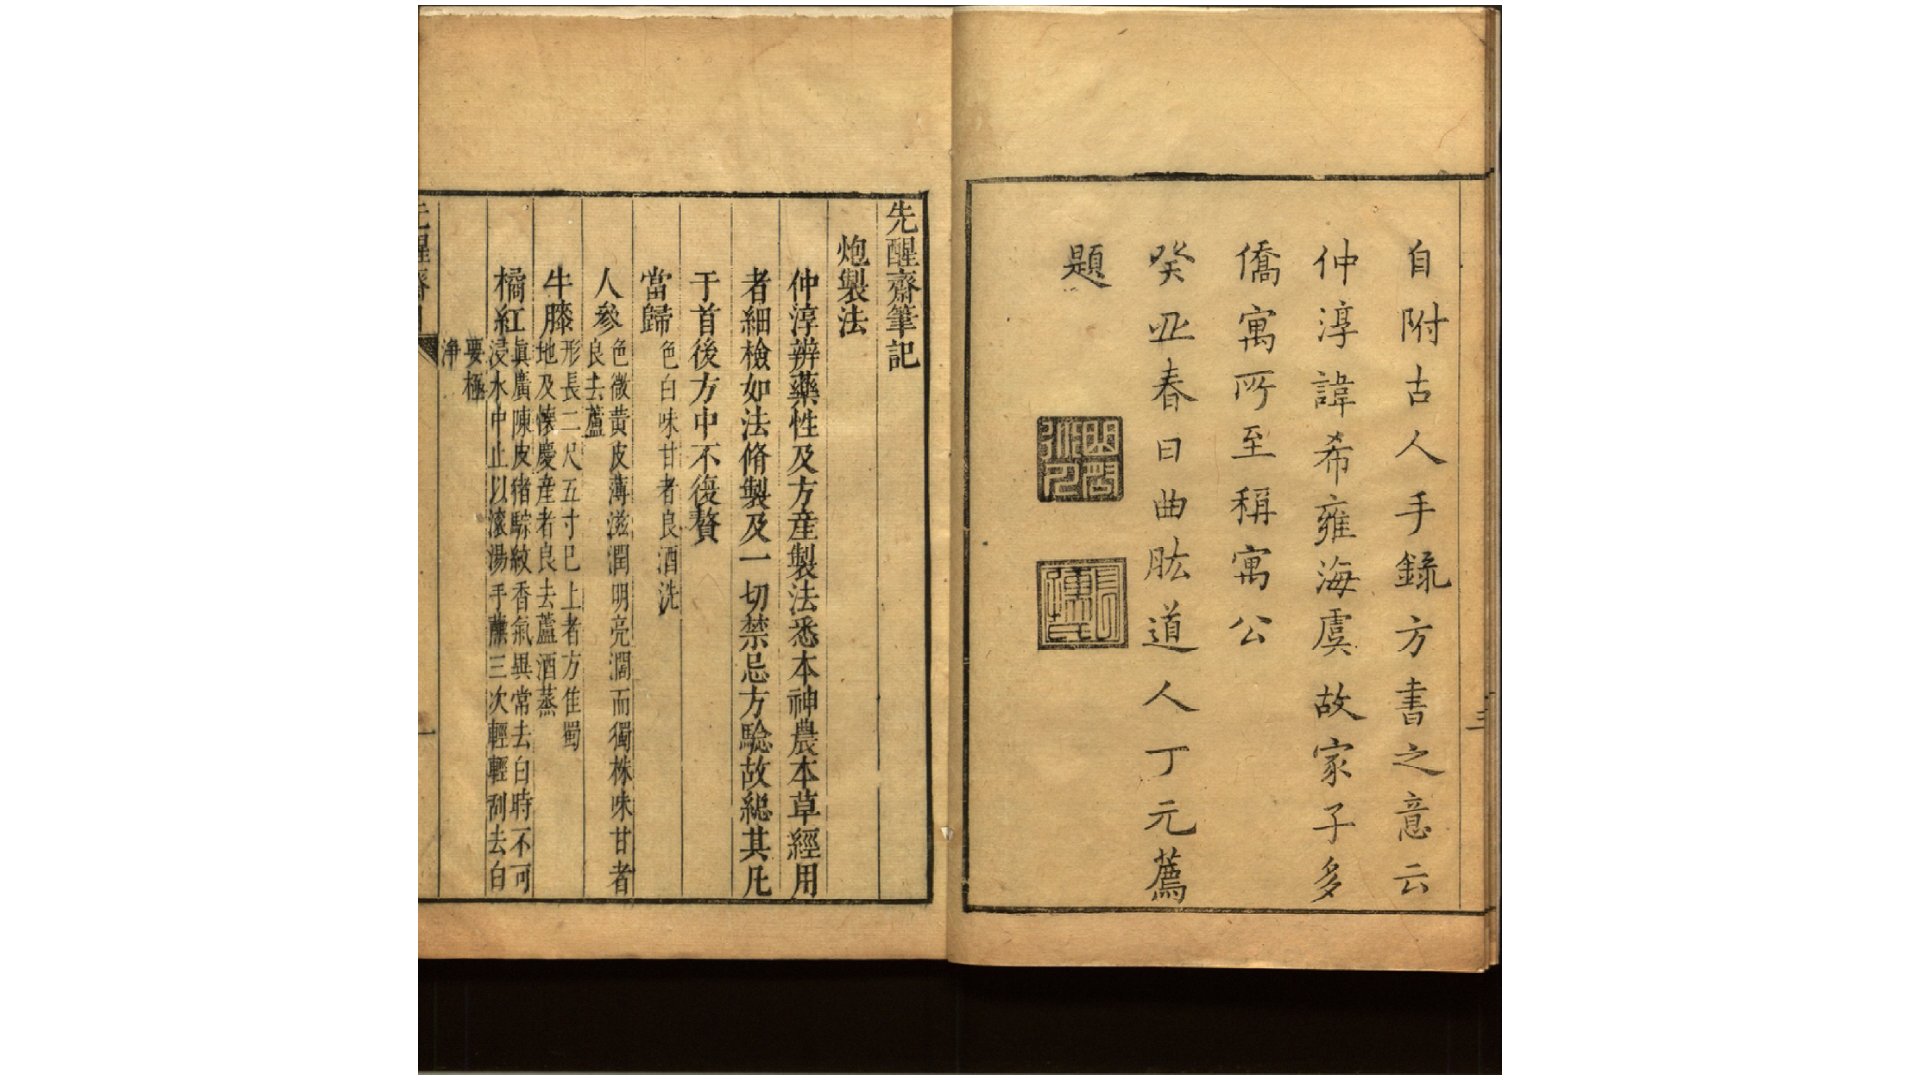 自附古人手録方書之意云
仲淳諱希雍海虞故家子多
僑寓所至稱寓公
癸丑春日曲肱道人丁元薦
題
三
先醒齋筆記
炮製法
仲淳辨藥性及方產製法悉本神農本草經用
者細檢如法脩製及一切禁忌方驗故總其凡
于首後方中不復贅
當歸色白味甘者良酒洗
人參色微黃皮薄滋潤明亮濶而獨株味甘者
良去蘆
牛膝形長二尺五寸已上者方佳蜀
地及懷慶產者良去蘆酒蒸
橘紅真廣陳皮猪騌紋香氣異常去白時不可
浸水中止以滚湯手蘸三次輕輕刮去白
要極
淨
一